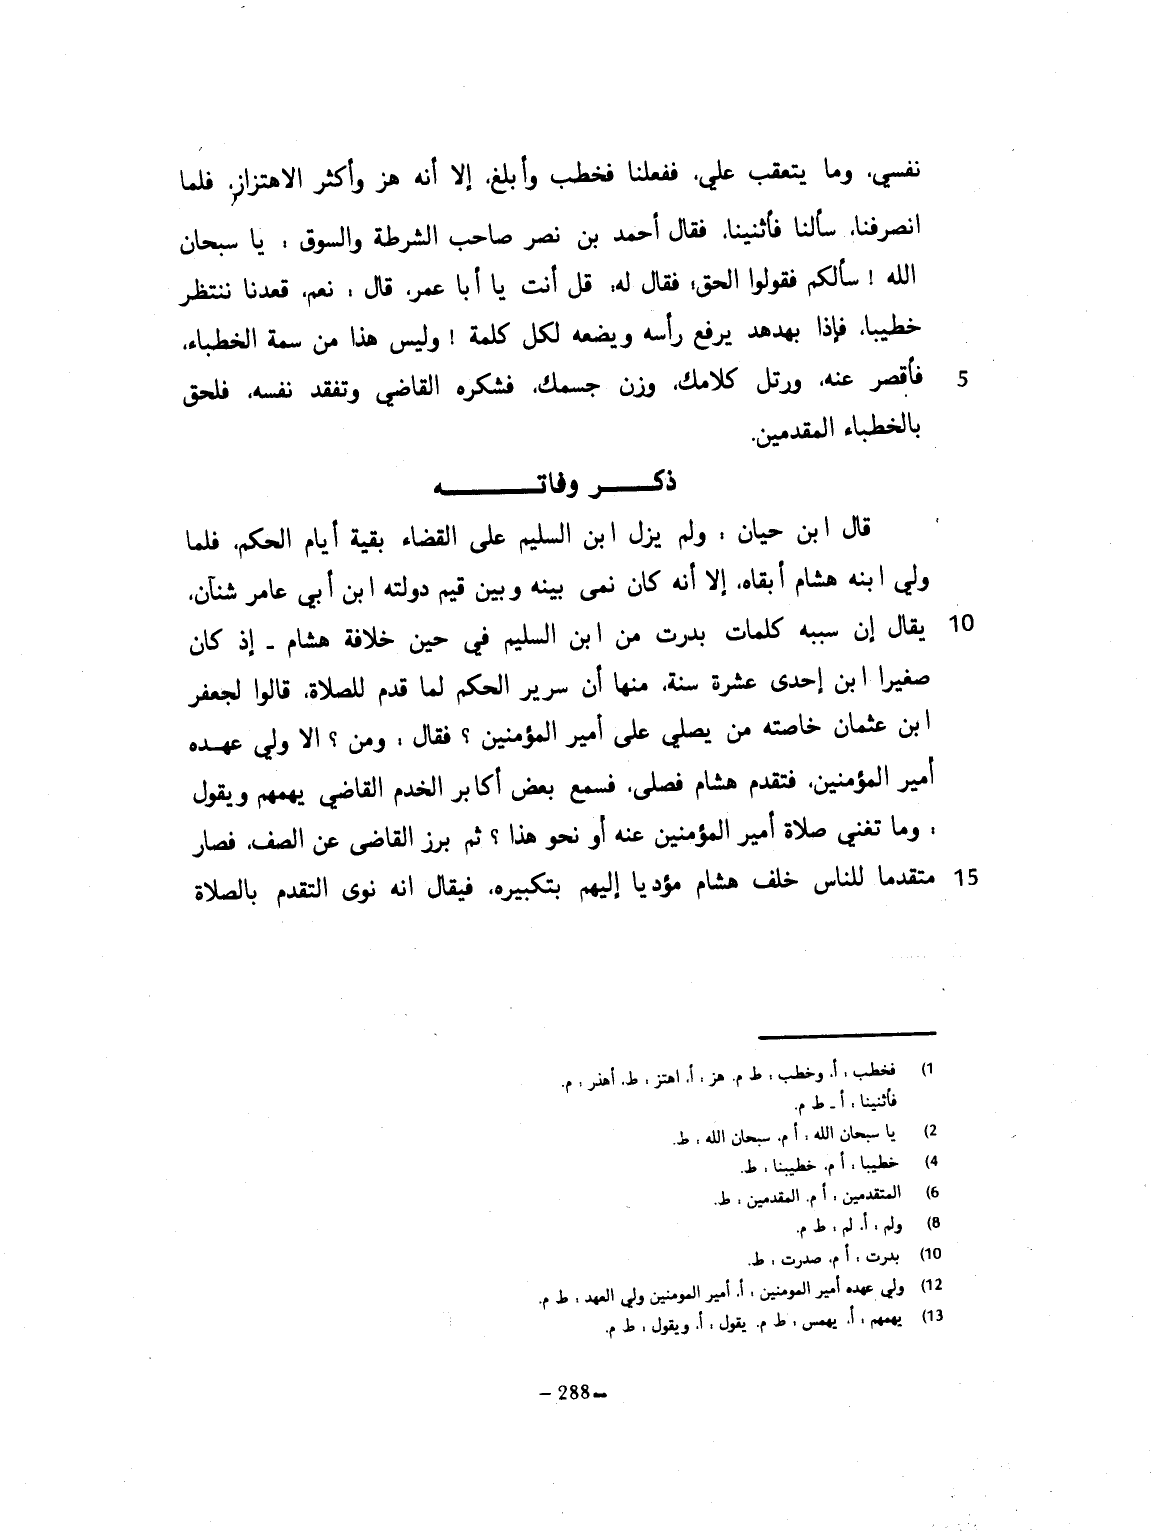 نفسي، وما يتعقب علي، ففعلنا فخطب وأبلغ، إلا أنه هز وأكثر الاهتزاز، فلما
انصرفنا، سألنا فأثنينا، فقال أحمد بن نصر صاحب الشرطة والسوق : يا سبحان
الله ! سألكم فقولوا الحق؛ فقال له: قل أنت يا أبا عمر، قال : نعم، قعدنا ننتظر
خطيبا، فإذا بهدهد يرفع رأسه ويضعه لكل كلمة ! وليس هذا من سمة الخطباء،
فأقصر عنه، ورتل كلامك، وزن جسمك، فشكره القاضي وتفقد نفسه، فلحق 5
بالخطباء المقدمين.
ذكر وفاته
قال ابن حيان : ولم يزل ابن السليم على القضاء بقية أيام الحكم، فلما
ولي ابنه هشام أبقاه، إلا أنه كان نمى بينه وبين قيم دولته ابن أبي عامر شنآن،
يقال إن سببه كلمات بدرت من ابن السليم في حين خلافة هشام ـ إذ كان 10
صغيرا ابن إحدى عشرة سنة، منها أن سرير الحكم لما قدم للصلاة، قالوا لجعفر
ابن عثمان خاصته من يصلي على أمير المؤمنين ؟ فقال : ومن ؟ الا ولي عهده
أمير المؤمنين، فتقدم هشام فصلى، فسمع بعض أكابر الخدم القاضي يهمهم ويقول
: وما تغني صلاة أمير المؤمنين عنه أو نحو هذا ؟ ثم برز القاضى عن الصف، فصار
متقدما للناس خلف هشام مؤديا إليهم بتكبيره، فيقال انه نوى التقدم بالصلاة 15
1) فخطب : أ. وخطب : ط م. هز : أ. اهتز : ط. أهذر : م.
فأثنينا : أ ـ ط م.
2) يا سبحان الله : أ م. سبحان الله : ط.
4) خطيبا : أ م. خطيبنا : ط.
6) المتقدمين : أ م. المقدمين : ط.
8) ولم : أ. لم : ط م.
10) بدرت : أ م. صدرت : ط.
12) ولي عهده أمير المومنين : أ. أمير المومنين ولي العهد : ط م.
13) يهمهم : أ. يهمس : ط م. يقول : أ. ويقول : ط م.
– 288 –